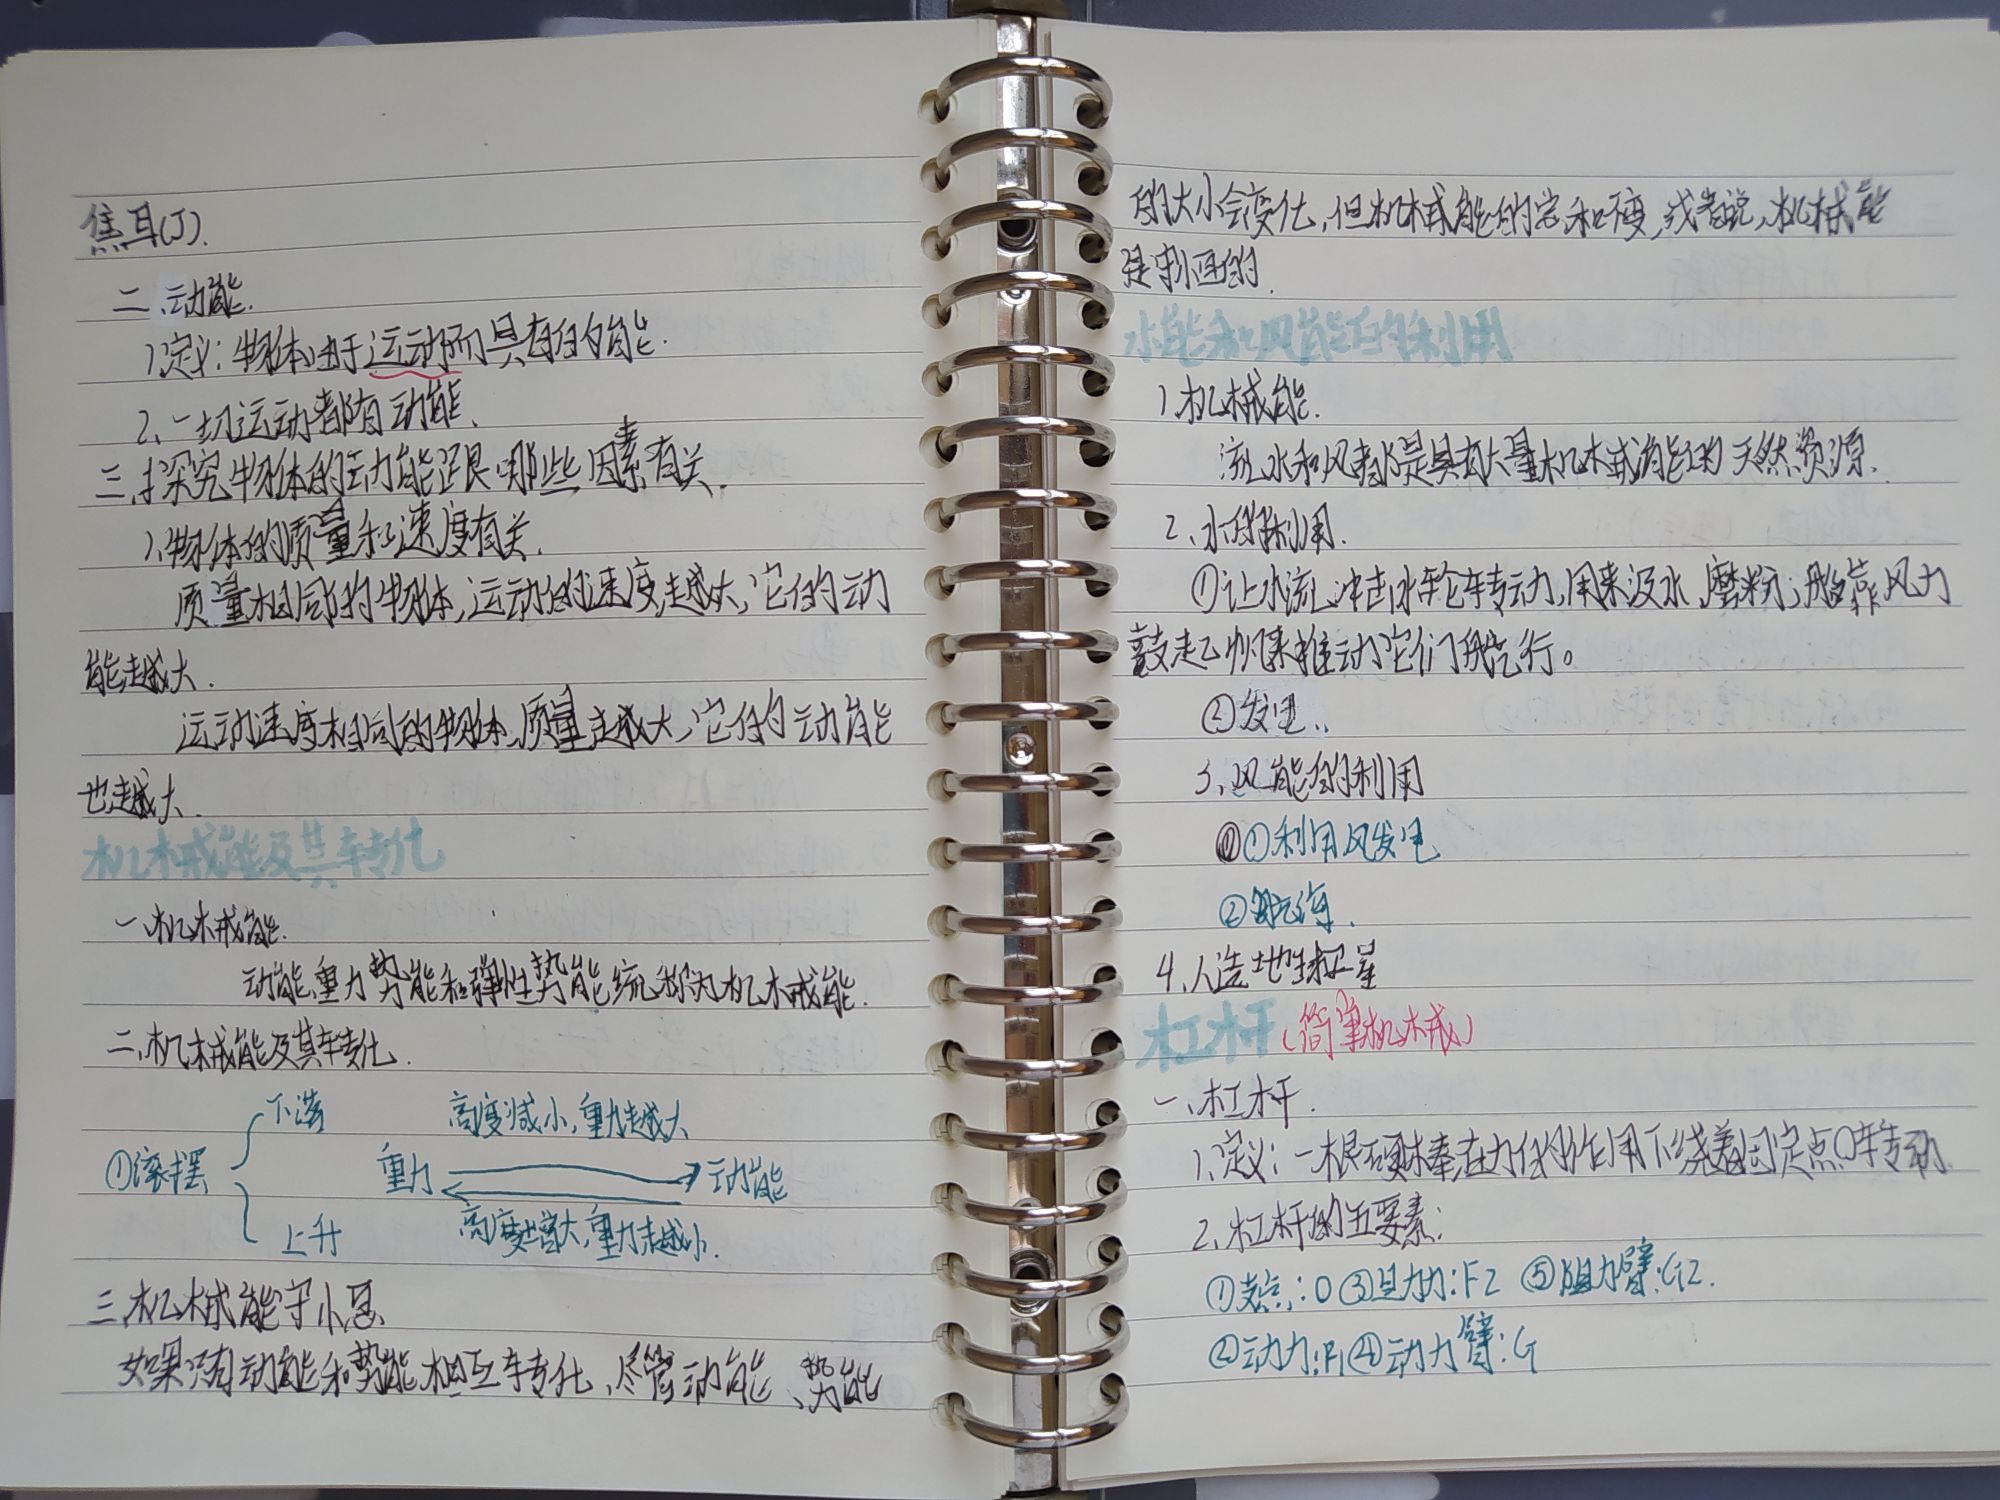 焦耳(J).
二、动能.
1.定义:物体由于运动而具有的能.
2.一切运动都有动能.
三、探究物体的动能跟哪些因素有关.
1.物体的质量和速度有关.
质量相同的物体,运动的速度越大,它的动
能越大.
运动速度相同的物体,质量越大,它的动能
也越大.
机械能及其转化
一、机械能.
动能、重力势能和弹性势能统称为机械能.
二、机械能及其转化.
下落 高度减小,重力越大
①滚摆 重力 动能
上升 高度增大,重力越小.
三、机械能守恒
如果只有动能和势能相互转化,尽管动能、势能
的大小会变化,但机械能的总和不变,或者说,机械能
是守恒的.
水能和风能的利用
1.机械能.
流水和风都是具有大量机械能的天然资源.
2.水能利用.
①让水流冲击水轮车转动,用来汲水、磨粉;船靠风力
鼓起帆来推动它们航行。
②发电.
3.风能的利用
①利用风发电
②航海.
4.人造地球卫星
杠杆(简单机械)
一、杠杆.
1.定义:一根硬棒在力的作用下绕着固定点O转动
2.杠杆的五要素:
①支点:O ③阻力:F2 ⑤阻力臂:G2.
②动力:F1 ④动力臂:G